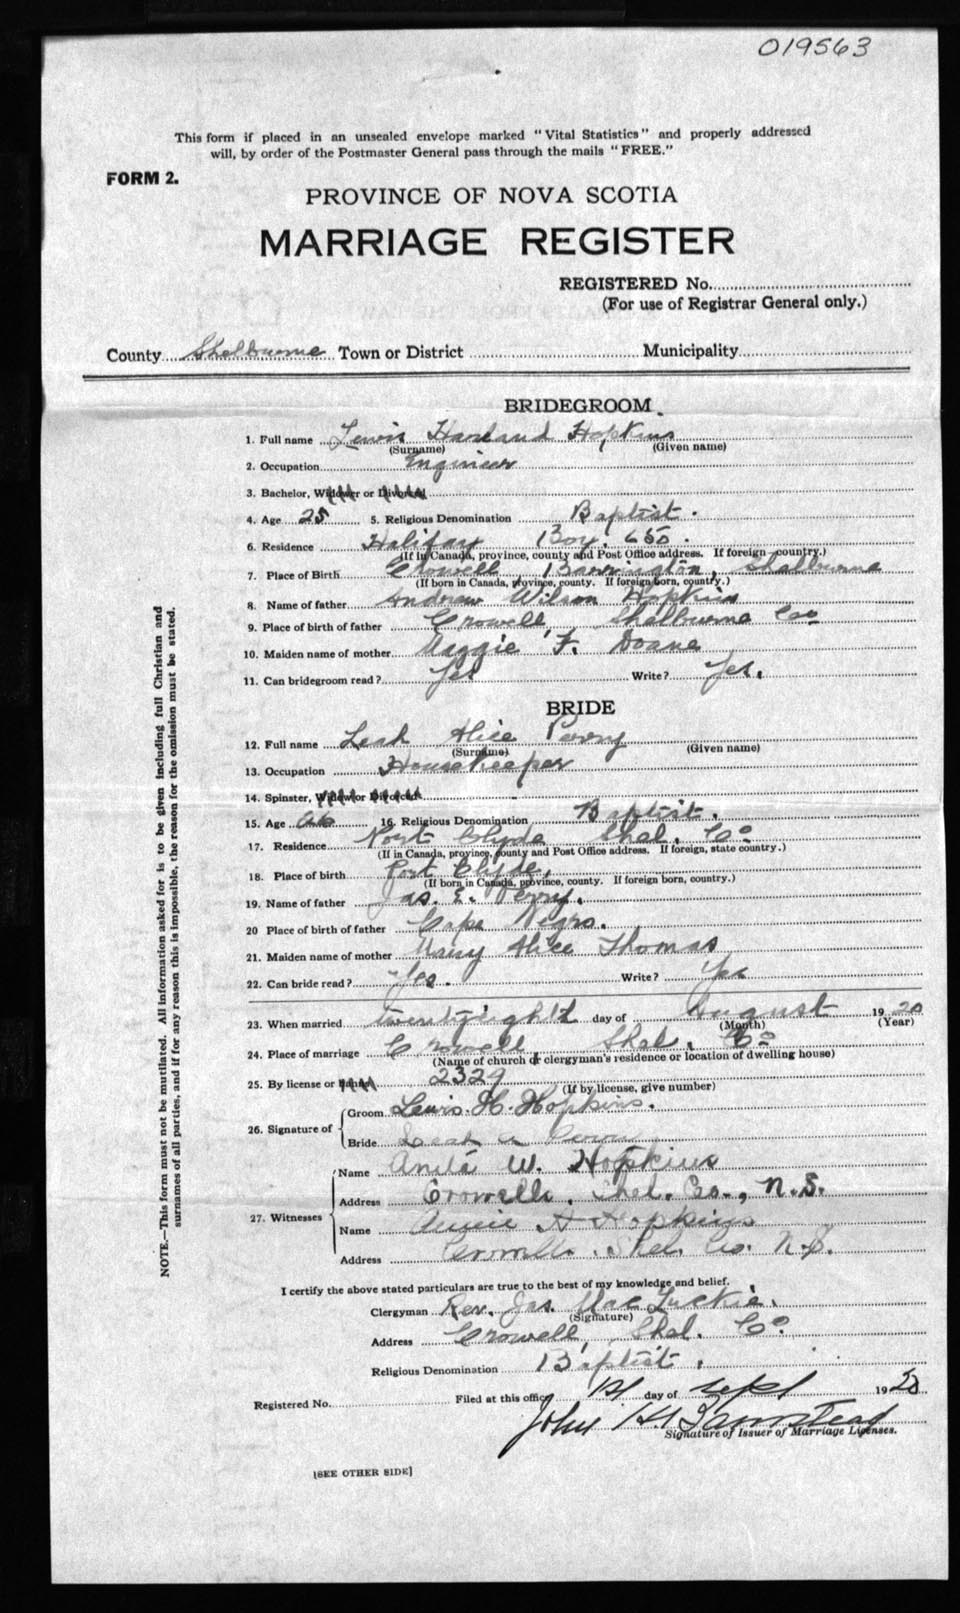 019563
This form if placed in an unsealed envelope marked "Vital Statistics" and properly addressed
will, by order of the Postmaster General pass through the mails "FREE."
FORM 2.
PROVINCE OF NOVA SCOTIA
MARRIAGE REGISTER
REGISTERED No.
(For use of Registrar General only.)
County Shelburne Town or District Municipality
BRIDEGROOM.
1. Full name Lewis Harland Hopkins
(Surname) (Given name)
2. Occupation Engineer
3. Bachelor, Widower or Divorced
4. Age 25 5. Religious Denomination Baptist.
6. Residence Halifax Box. 650.
(If in Canada, province, county and Post Office address. If foreign country.)
7. Place of Birth Crowell Barrington, Shelburne
(If born in Canada, province, county. If foreign born, country.)
8. Name of father Andrew Wilson Hopkins
9. Place of birth of father Crowell, Shelburne Co
10. Maiden name of mother Maggie F. Doane
11. Can bridegroom read? Yes Write? Yes.
BRIDE
12. Full name Leah Alice Perry
(Surname) (Given name)
13. Occupation Housekeeper
14. Spinster, Widow or Divorced
15. Age 16. Religious Denomination Baptist.
17. Residence Port Clyde Shel. Co
(If in Canada, province, county and Post Office address. If foreign, state country.)
18. Place of birth Port Clyde,
(If born in Canada, province, county. If foreign born, country.)
19. Name of father Jas. E. Perry.
20 Place of birth of father Cape Negro.
21. Maiden name of mother Mary Alice Thomas
22. Can bride read? Yes. Write? Yes
23. When married twentyeight day of August 1920
(Month) (Year)
24. Place of marriage Crowell Shel. Co
(Name of church or clergyman's residence or location of dwelling house)
25. By license or banns 2329
(If by license, give number)
26. Signature of
Groom Lewis. H. Hopkins.
Bride Leah A Perry
27. Witnesses
Name Anita W. Hopkins
Address Crowells, Shel. Co., N.S.
Name Annie H Hopkins
Address Crowells. Shel. Co. N.S.
I certify the above stated particulars are true to the best of my knowledge and belief.
Clergyman Rev. Jas. MacLuckie.
(Signature)
Address Crowell, Shel. Co
Religious Denomination Baptist.
Registered No. Filed at this office 1st day of Sept 1920
John H
Signature of Issuer of Marriage Licenses.
[SEE OTHER SIDE]
NOTE.—This form must not be mutilated. All information asked for is to be given including full Christian and
surnames of all parties, and if for any reason this is impossible, the reason for the omission must be stated.